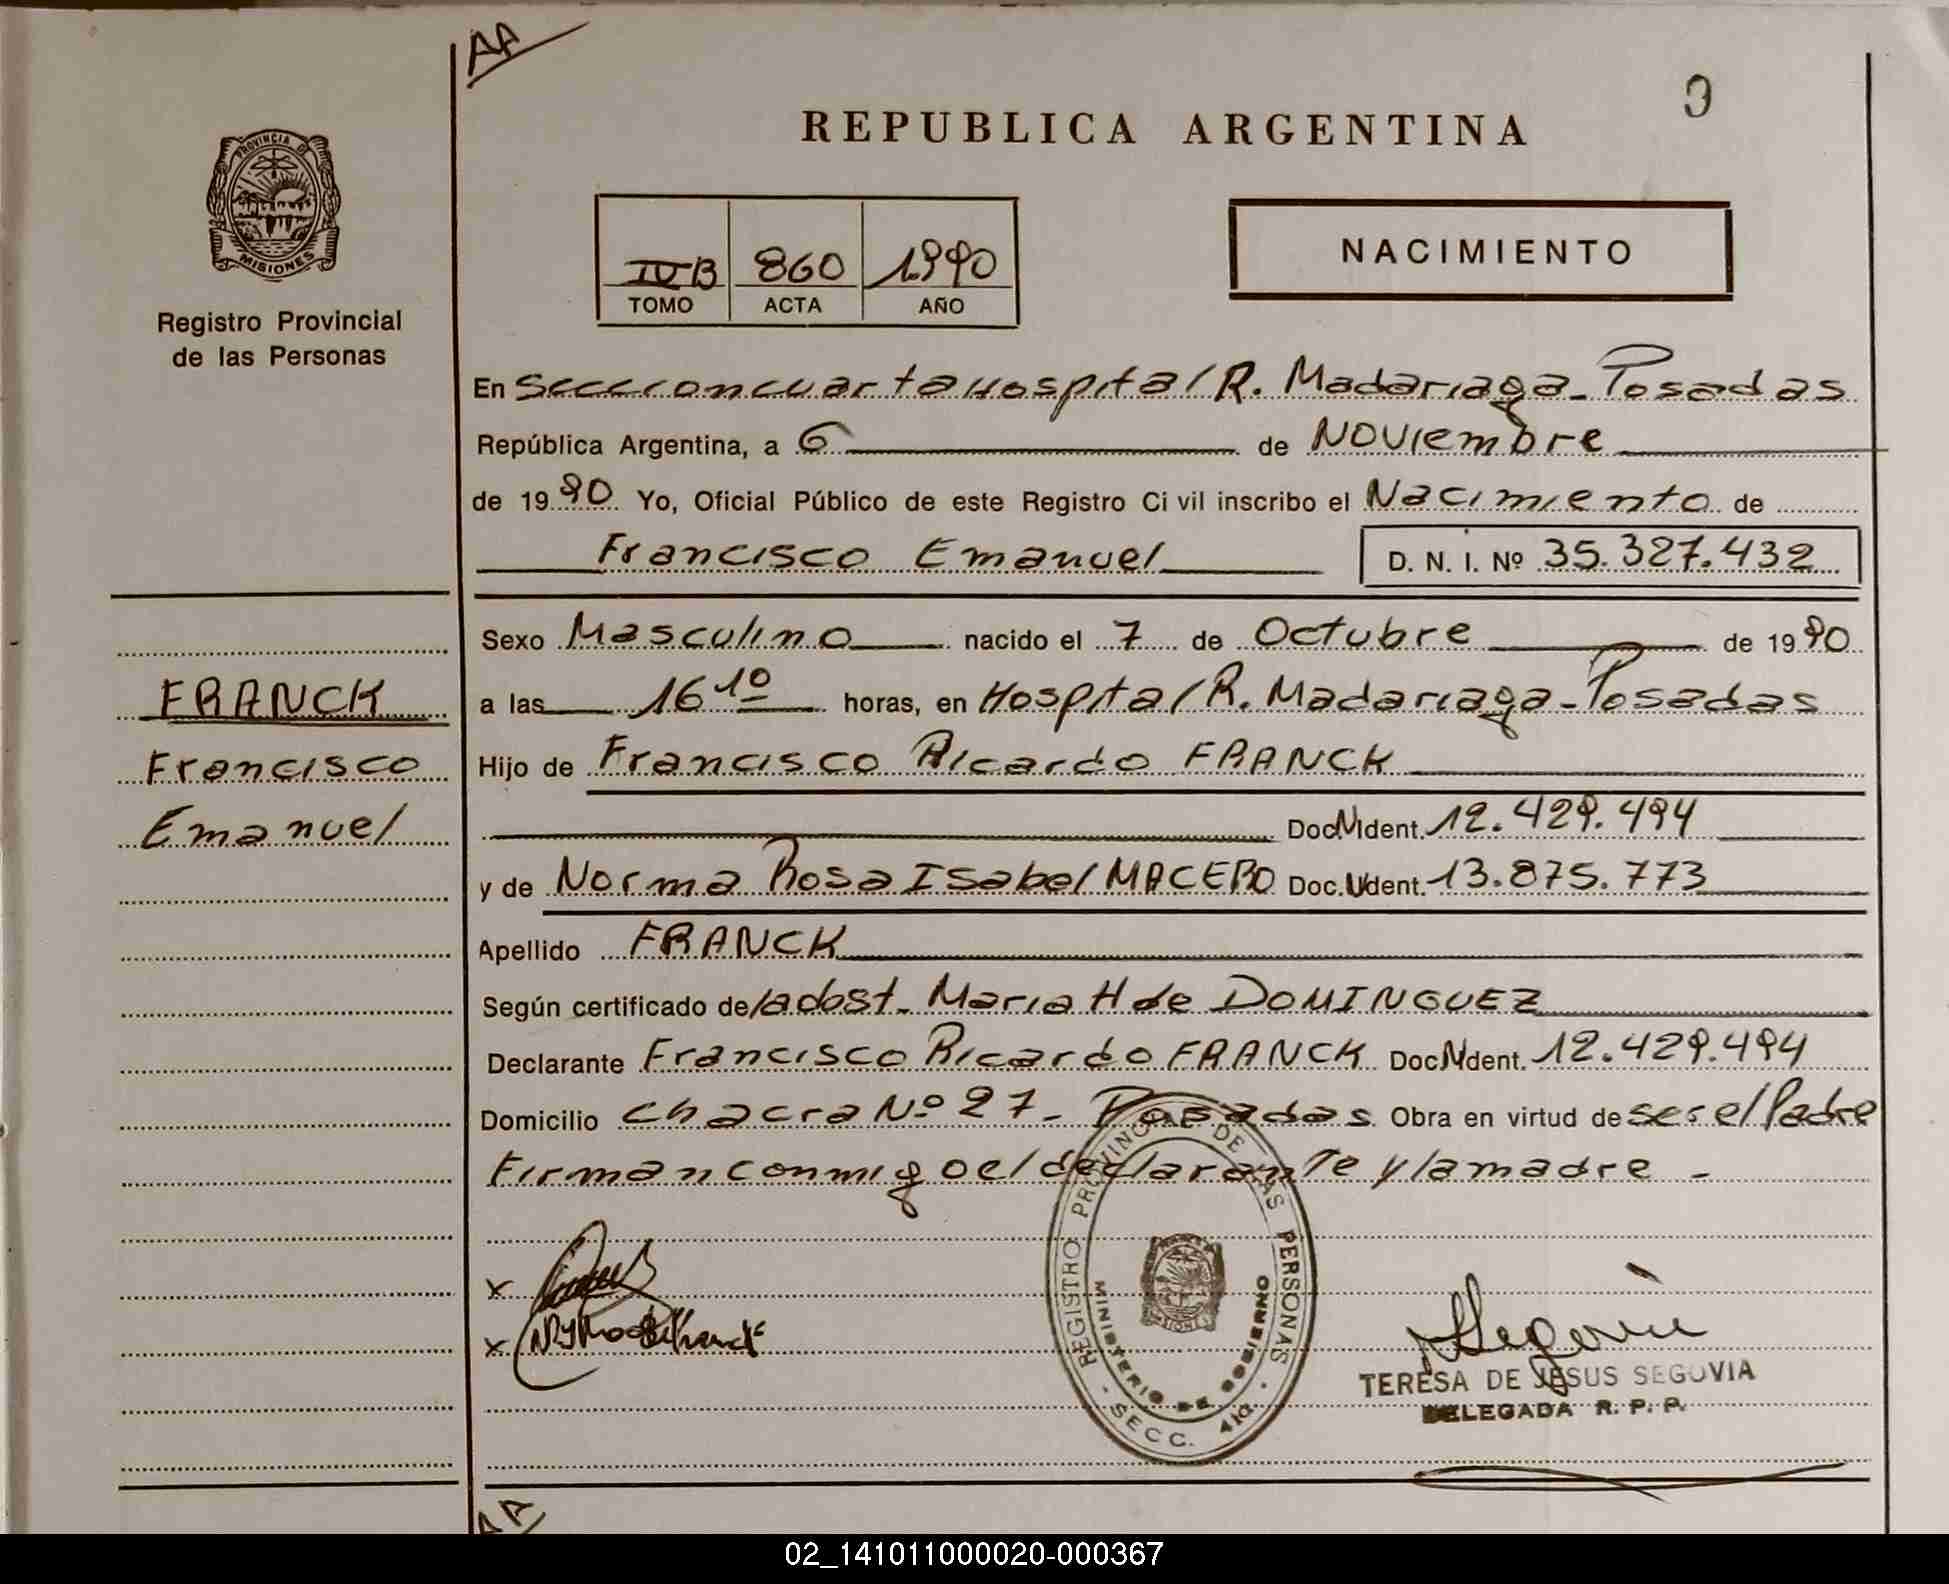 AA
9
REPUBLICA ARGENTINA
PROVINCIA D
MISIONES
Registro Provincial
de las Personas
IV B 860 1990
TOMO ACTA AÑO
NACIMIENTO
En Sección cuarta Hospital R. Madariaga - Posadas
República Argentina, a 6 de Noviembre
de 1990 Yo, Oficial Público de este Registro Civil inscribo el Nacimiento de
Francisco Emanuel D. N. I. Nº 35.327.432
Sexo Masculino nacido el 7 de Octubre de 1990
a las 16 10 horas, en Hospital R. Madariaga - Posadas
Hijo de Francisco Ricardo FRANCK
Doc N Ident. 12.429.494
y de Norma Rosa Isabel MACERO Doc. U Ident. 13.875.773
Apellido FRANCK
Según certificado de la obst. Maria H de DOMINGUEZ
Declarante Francisco Ricardo FRANCK Doc N Ident. 12.429.494
Domicilio Chacra Nº 27 - Posadas Obra en virtud de ser el Padre
Firman conmigo el declarante y la madre -
FRANCK
Francisco
Emanuel
x
x
REGISTRO PROVINCIAL DE LAS PERSONAS
MINISTERIO DE GOBIERNO
MISIONES
- SECC. 4ta. -
Segovia
TERESA DE JESUS SEGOVIA
DELEGADA R. P. P.
AA
02_141011000020-000367